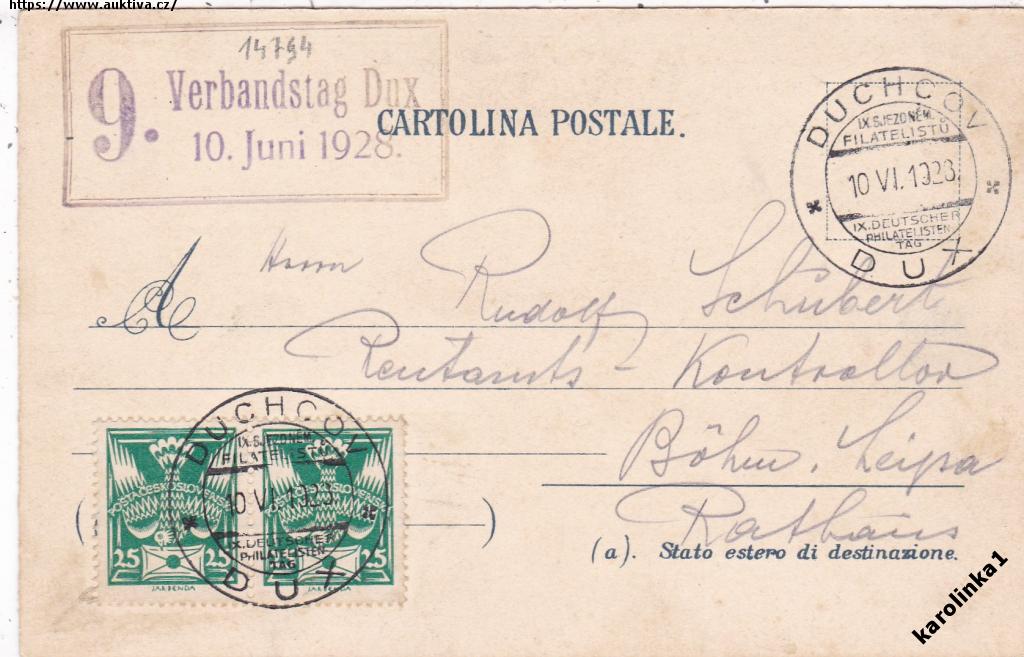 https://www.auktiva.cz/
14794
9. Verbandstag Dux
10. Juni 1928.
CARTOLINA POSTALE.
DUCHCOV
IX.SJEZD NĚM.
FILATELISTŮ
10 VI. 1928
IX. DEUTSCHER
PHILATELISTEN
TAG
DUX
A
Herrn Rudolf Schubert
Rentamts-Kontrollor
Böhm. Leipa
Rathaus
(a). Stato estero di destinazione.
DUCHCOV
IX.SJEZD NĚM.
FILATELISTŮ
10 VI. 1928
IX. DEUTSCHER
PHILATELISTEN
TAG
DUX
POSTA ČESKOSLOVENSKÁ
25 25
JAK BENDA
25
JAK BENDA
karolinka1